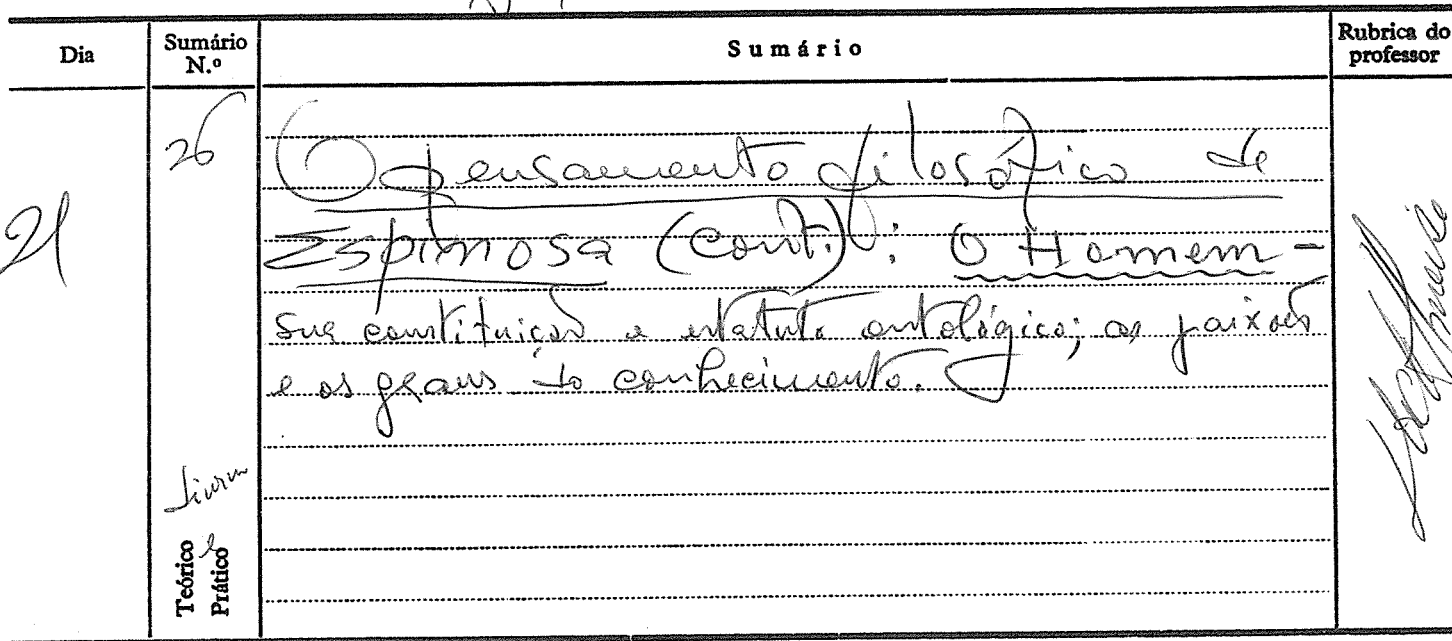 Dia
Sumário
N.º
Sumário
Rubrica do
professor
21
26
O pensamento filosófico de
Espinosa (cont.): O Homem -
sua constituição e estatuto ontológico; as paixões
e os graus do conhecimento.
Teórico
Prático